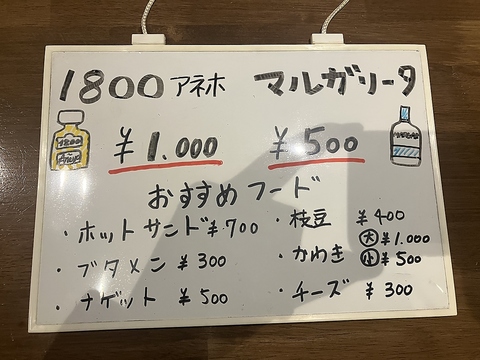 1800 アネホ マルガリータ
¥1.000 ¥500
おすすめフード
・ホットサンド ¥700
・ブタメン ¥300
・ナゲット ¥500
・枝豆 ¥400
・かわき 大 ¥1.000
小 ¥500
・チーズ ¥300
1800